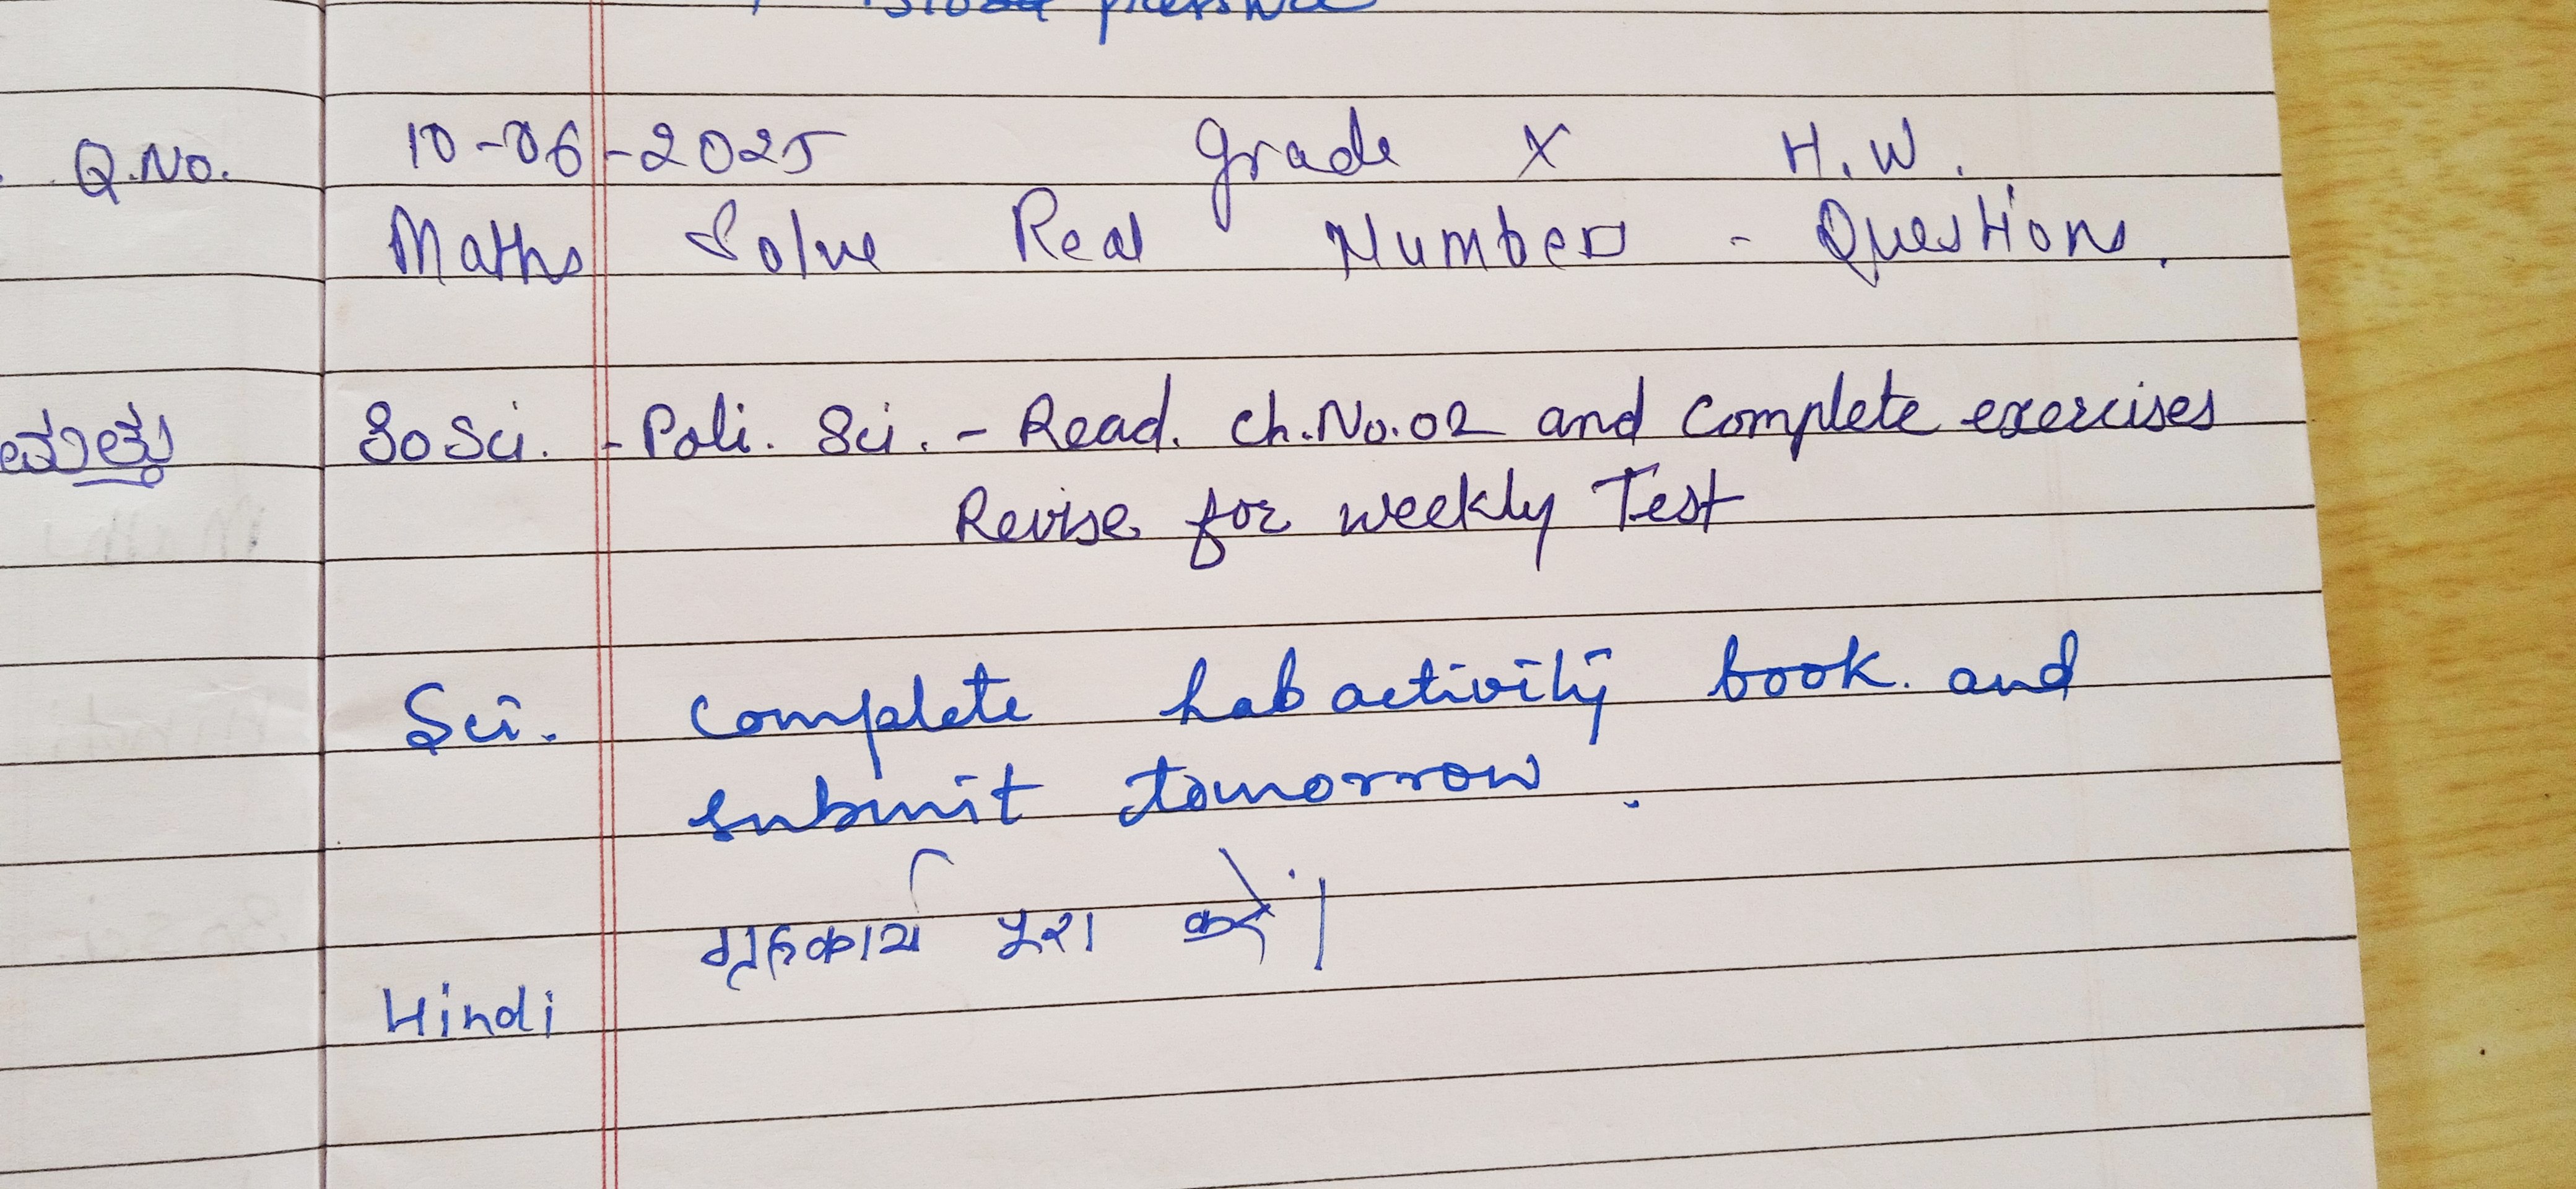 Blood pressure
10-06-2025 Grade X H.W.
Q.No.
Maths Solve Real Number - Questions.
ಮತ್ತು
SoSci. - Poli. Sci. - Read. Ch.No.02 and complete exercises
Revise for weekly Test
Sci. complete Lab activity book. and
submit tomorrow.
गृहकार्य पूरा करें।
Hindi